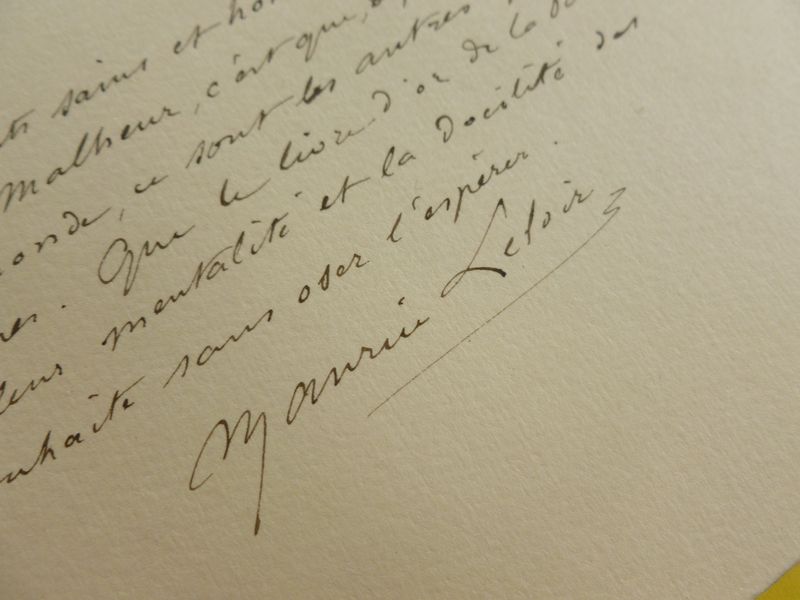 sains et
Malheur, c'est que,
monde, ce sont les autres
Que le livre d'or de la
leur mentalité et la docilité des
souhaite sans oser l'espérer.
Maurice Leloir